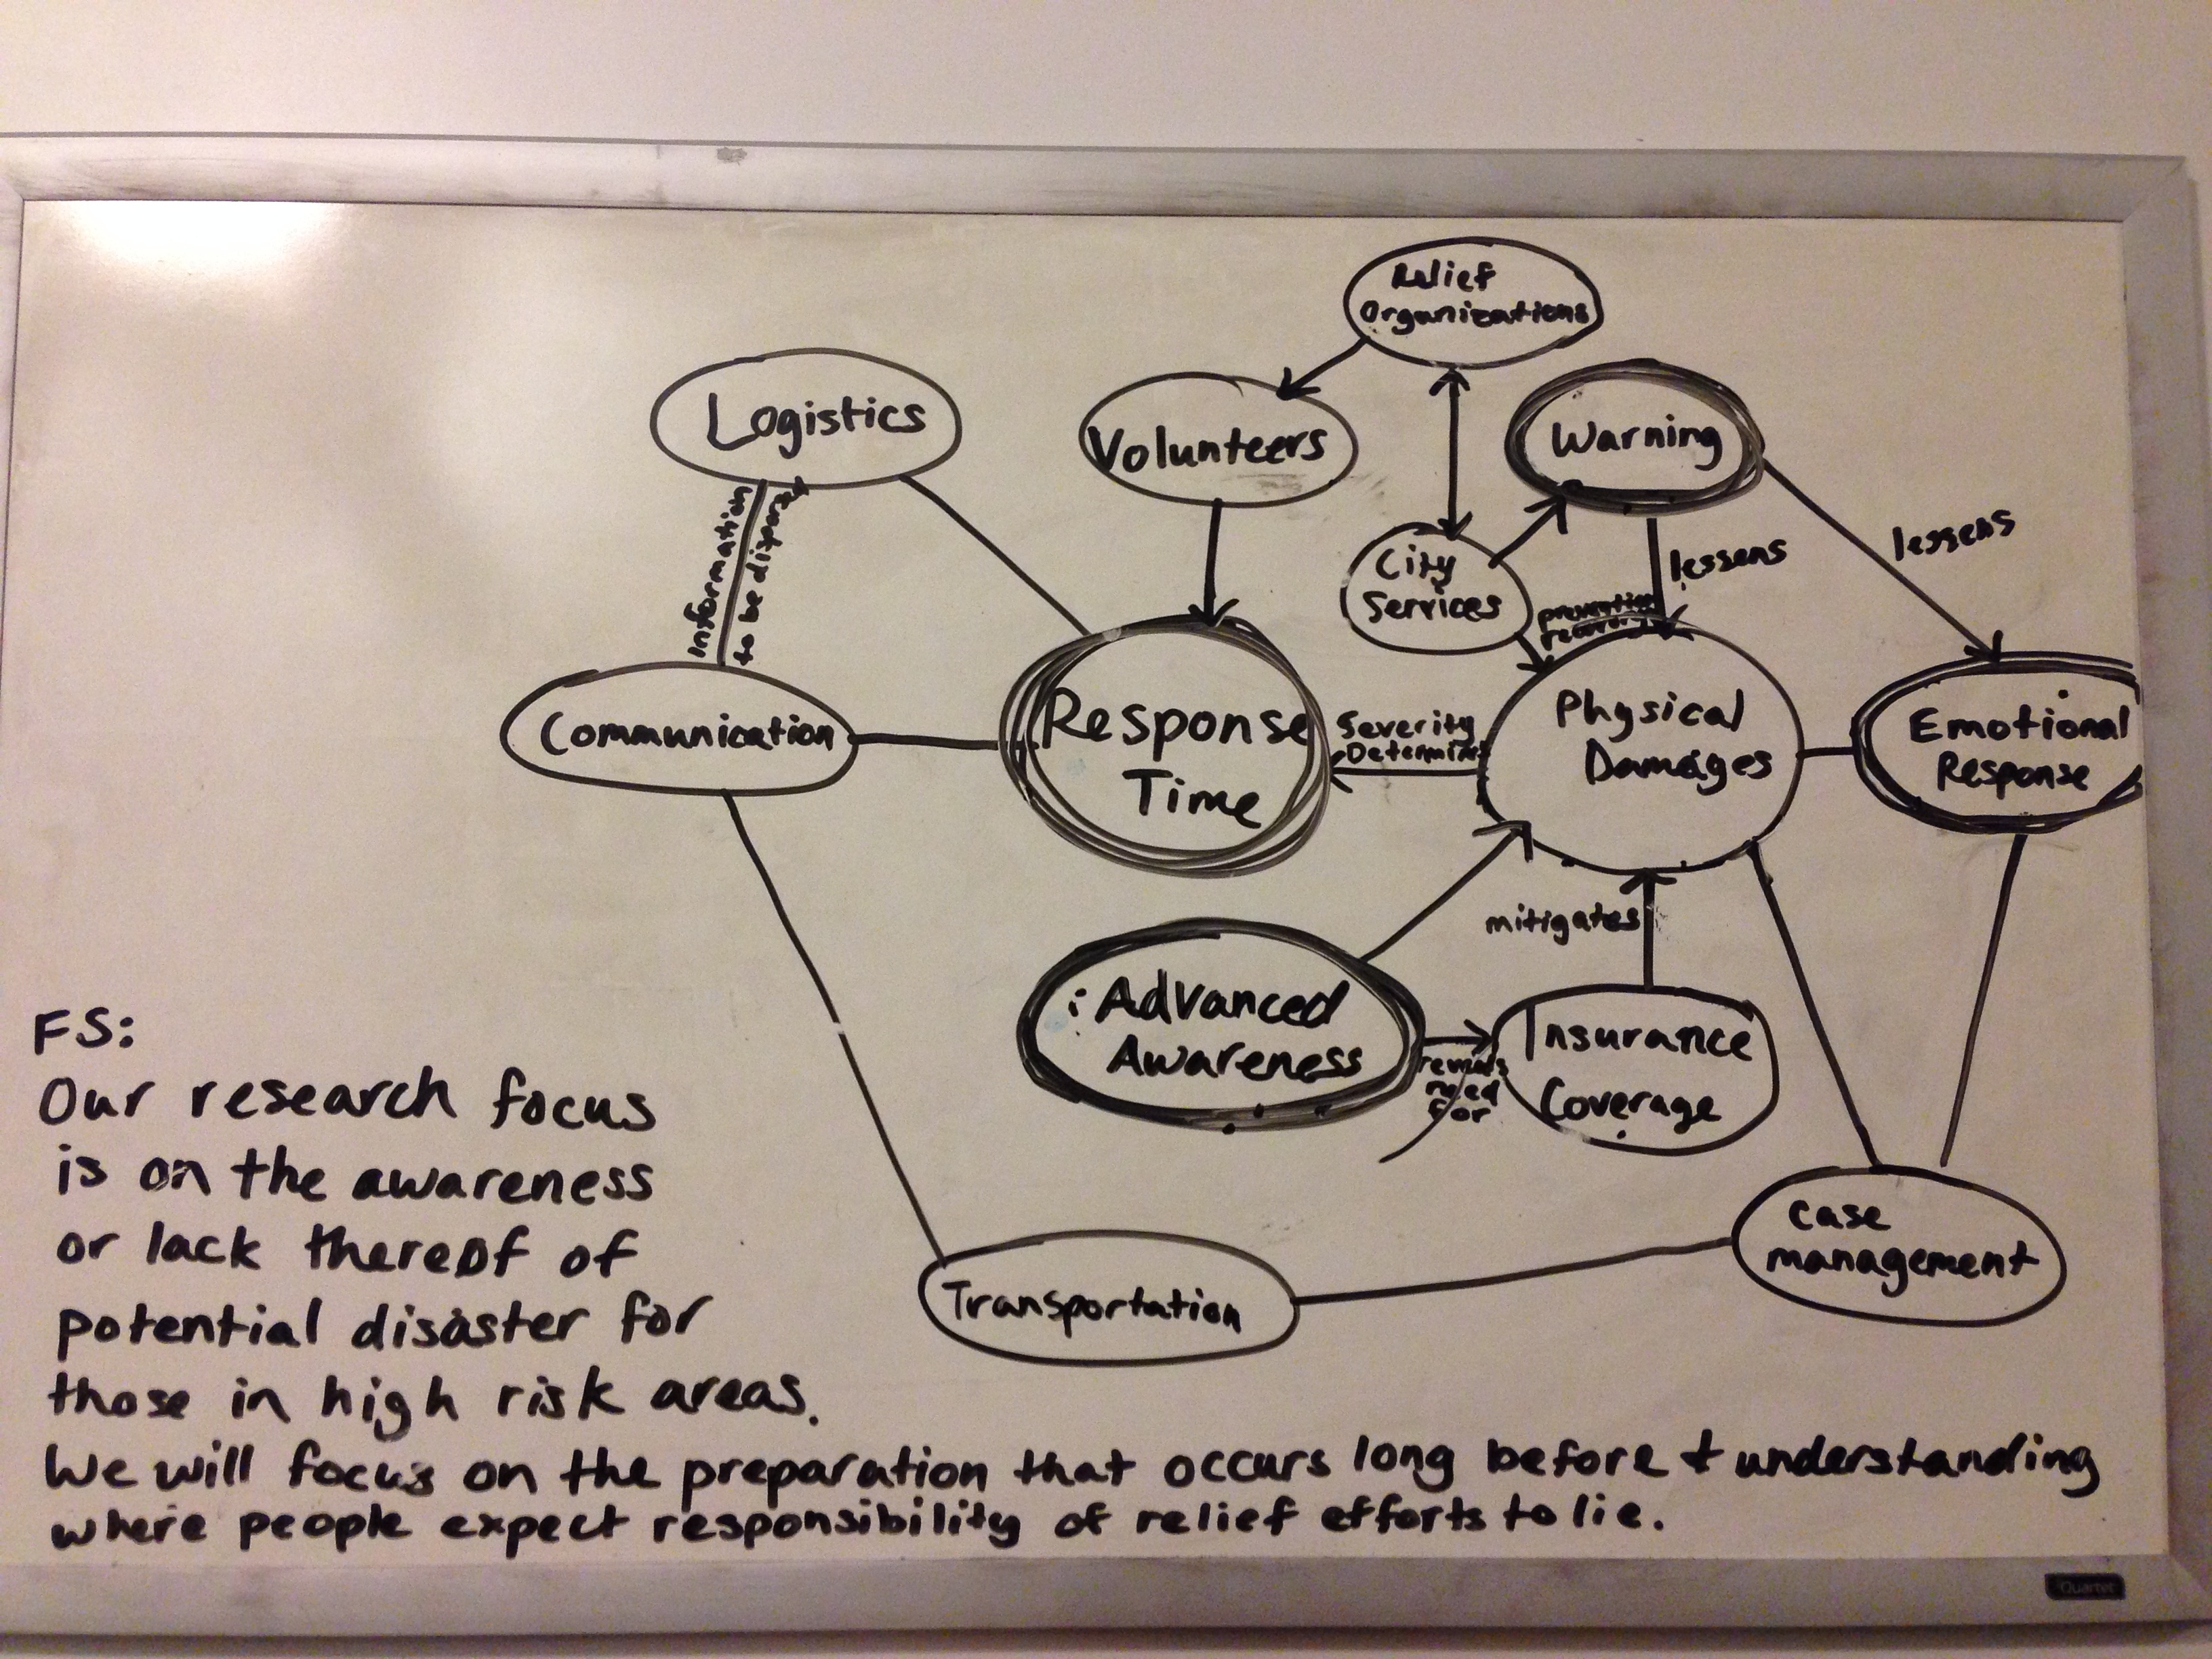 Relief
Organizations
Logistics
Volunteers
Warning
lessens
lessens
Information
to be dispersed
City
Services
prevention
recovery
Communication
Response
Time
Severity
Determines
Physical
Damages
Emotional
Response
mitigates
Advanced
Awareness
reveals
need
for
Insurance
Coverage
case
management
Transportation
FS:
Our research focus
is on the awareness
or lack thereof of
potential disaster for
those in high risk areas.
We will focus on the preparation that occurs long before + understanding
where people expect responsibility of relief efforts to lie.
Quartet